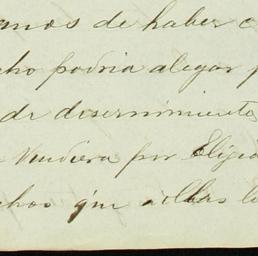 amos de haber c
cho podria alegar p
de discernimiento
Vendiera por Eligio
chos que a ellas l